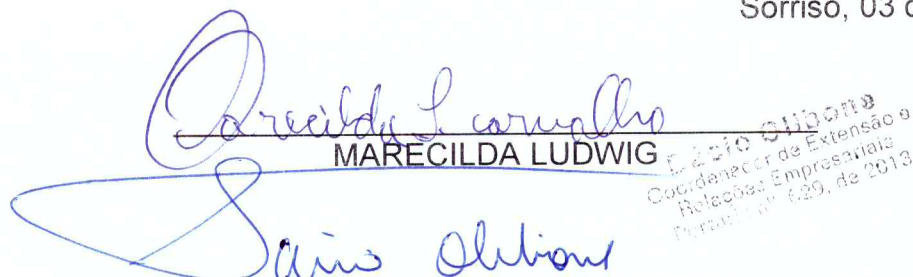 Sorriso, 03 d
Marecilda L. carvalho
MARECILDA LUDWIG
Coordenador de Extensão e
Relações Empresariais
Portaria nº 629, de 2013